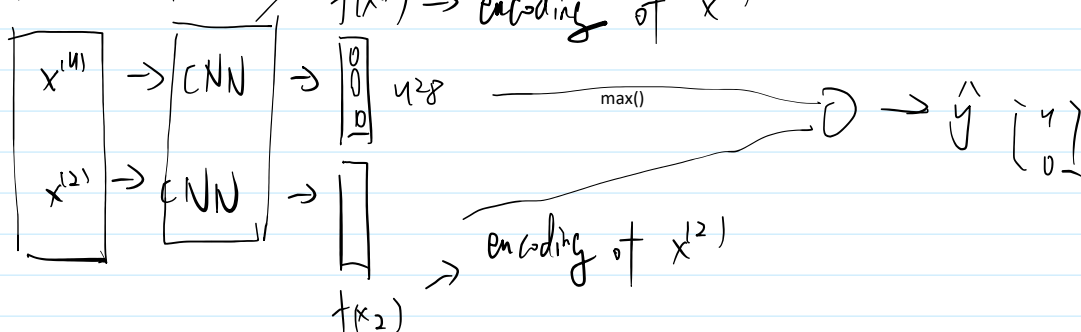 f(x) → encoding of x
x⁽¹⁾ → CNN → 128 max() → ŷ [1 0]
x⁽²⁾ → CNN →
→ encoding of x⁽²⁾
f(x₂)